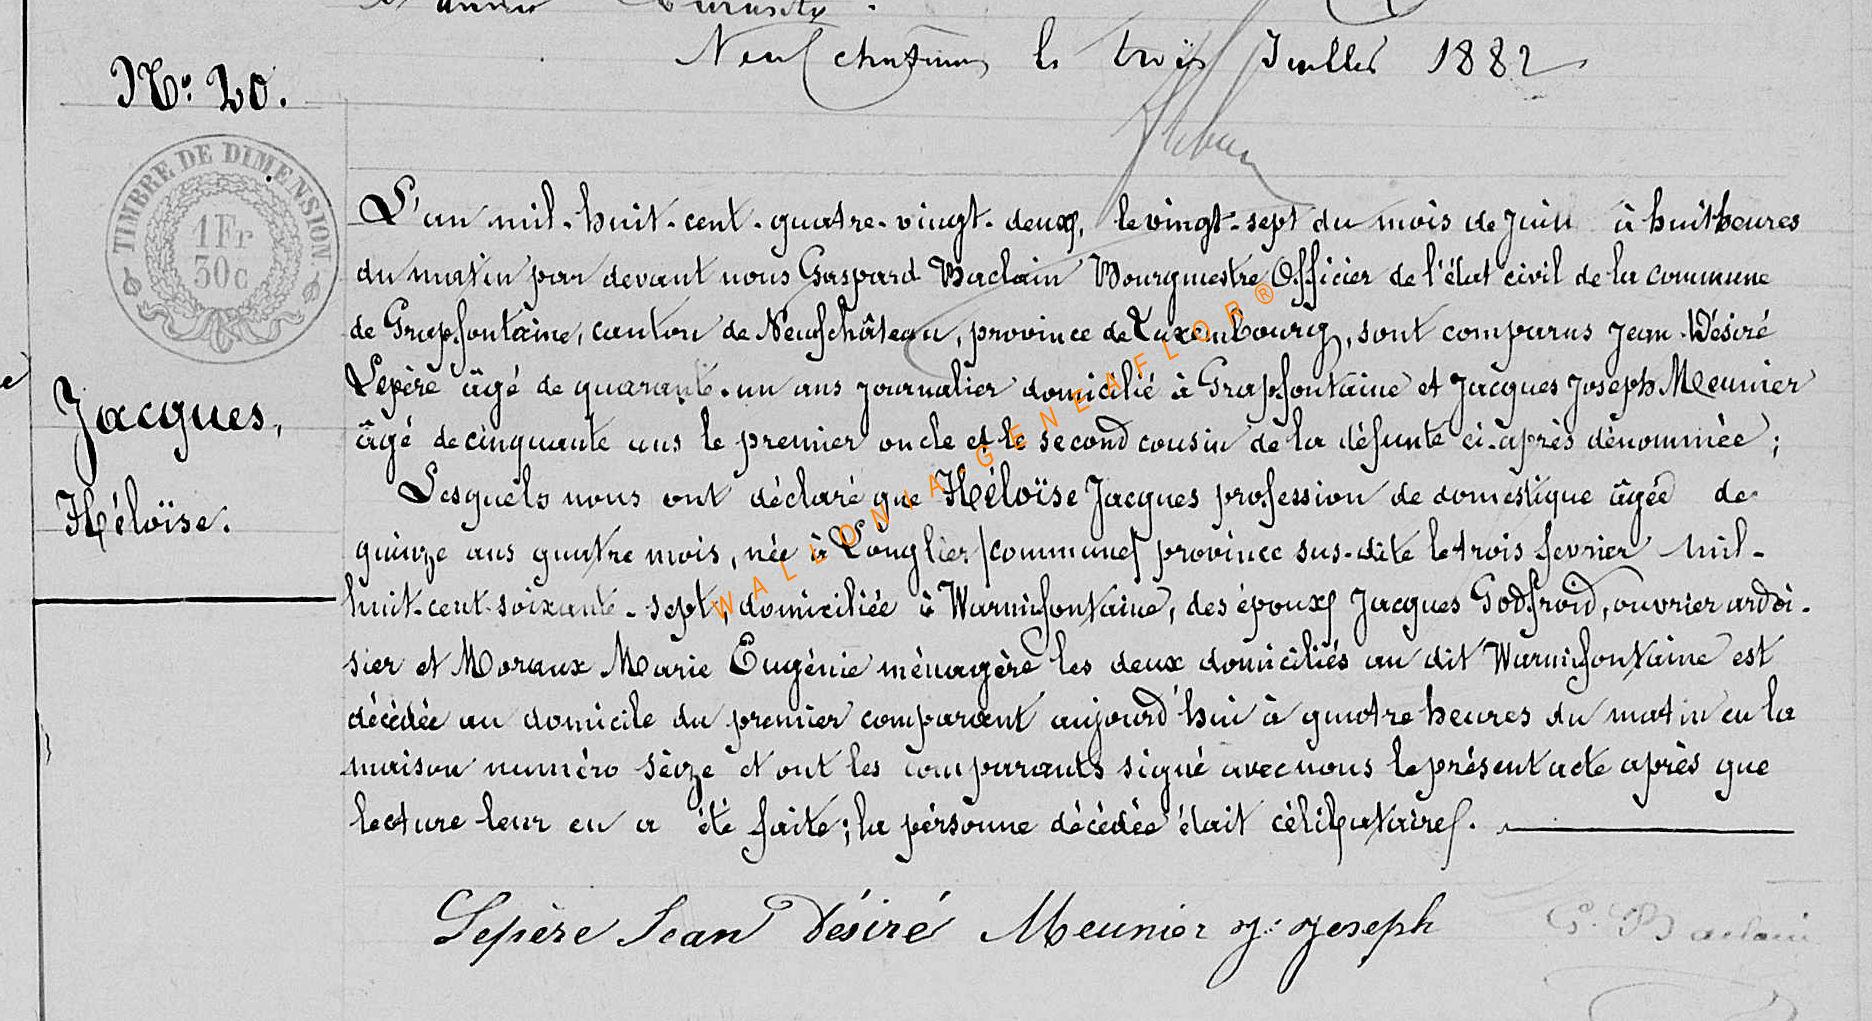 Neufchâteau, le trois Juillet 1882
N° 20.
TIMBRE DE DIMENSION
1Fr
30c
L'an mil-huit-cent-quatre-vingt-deux, le vingt-sept du mois de Juin à huit heures
du matin par devant nous Gaspard Baclain Bourgmestre Officier de l'état civil de la commune
de Grapfontaine, canton de Neufchâteau, province de Luxembourg, sont comparus Jean-Désiré
Lepère âgé de quarante-un ans journalier domicilié à Grapfontaine et Jacques Joseph Meunier
âgé de cinquante ans le premier oncle et le second cousin de la défunte ci-après dénommée ;
Lesquels nous ont déclaré que Héloïse Jacques profession de domestique âgée de
quinze ans quatre mois, née à Longlier (commune) province sus-dite le trois fevrier mil-
huit-cent-soixante-sept, domiciliée à Warmifontaine, des époux Jacques Godfroid, ouvrier ardoi-
sier et Moraux Marie Eugénie ménagère les deux domiciliés au dit Warmifontaine est
décédée au domicile du premier comparant aujourd'hui à quatre heures du matin en la
maison numéro sèize et ont les comparants signé avec nous le présent acte après que
lecture leur en a été faite ; la pérsonne décédée était célibataire.
Jacques,
Héloïse.
Lepère Jean Désiré Meunier J. Joseph G. Baclain
WALLONIA-GENEAFLOR®